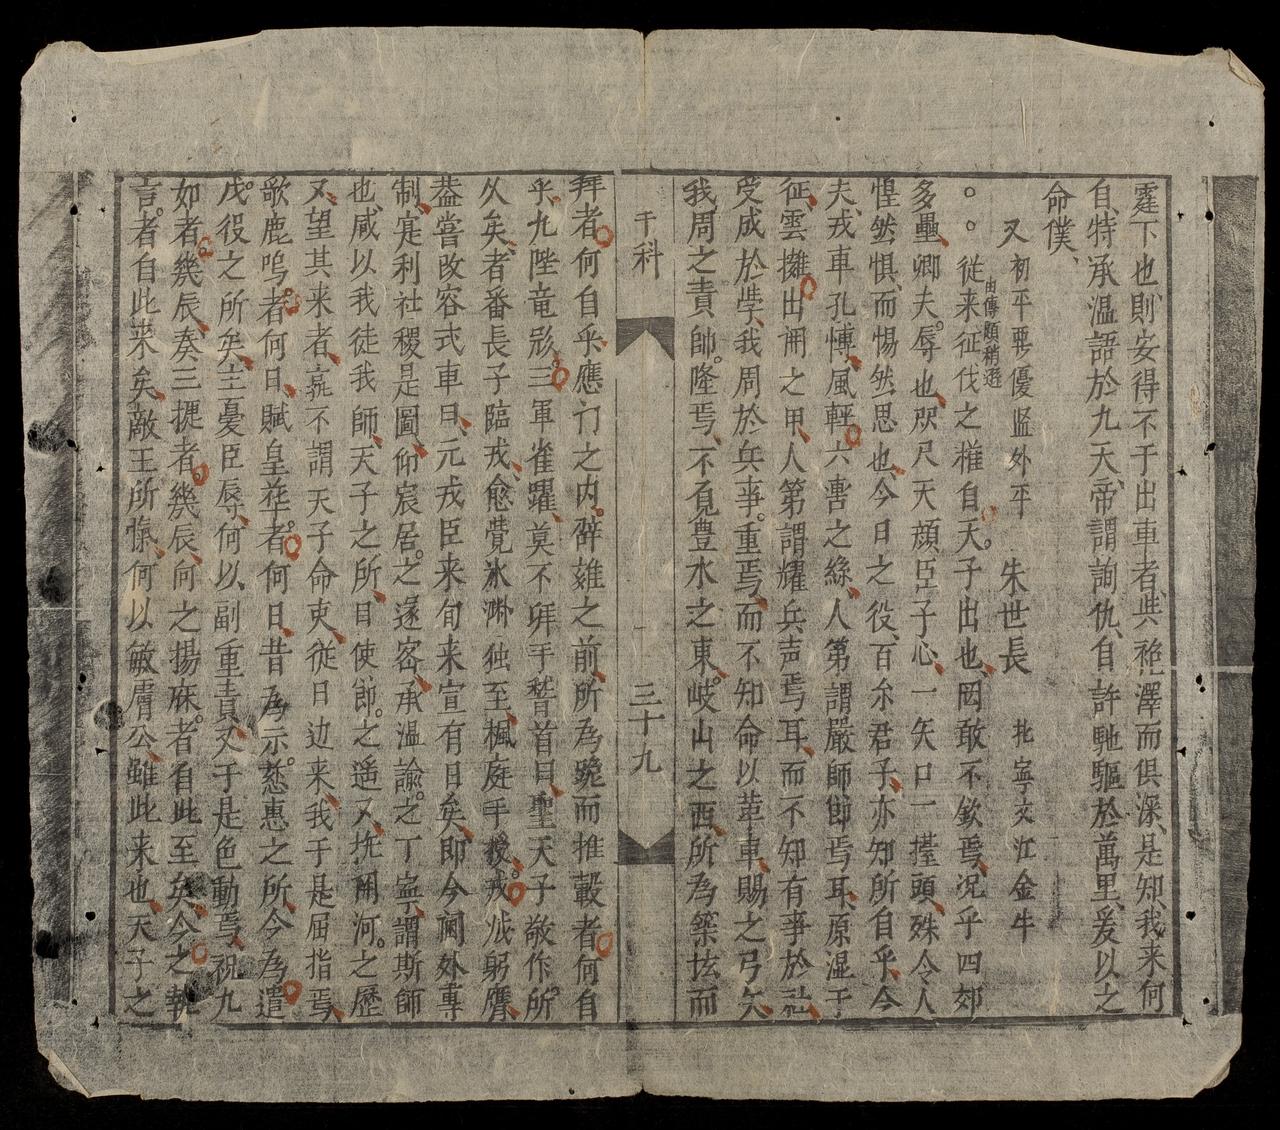 霆下也則安得不于出車者共袍澤而俱深是知我来何
自特承温語於九天帝謂詢仇自許馳驅於萬里爰以之
命僕
又 初平要優 監外平 朱世長 北寧文江金牛
由傳題稍遜
従来征伐之權自天子出也因敢不欽焉况乎四郊
多壘卿夫辱也咫尺天顔臣子心一矢口一擡頭殊令人
惶然惧而惕然思也今日之役百尔君子亦知所自乎今
夫戎車孔博風輕六轡之絲人第謂嚴師節焉耳原湿于
征雲擁出湖之甲人第謂耀兵声焉耳而不知有事於社
受成於学我周於兵事重焉而不知命以革車賜之弓矢
我周之責帥隆焉不覓豊水之東岐山之西所為築坛而
干科
三十九
拜者何自乎應门之内薜蘿之前所為跪而推轂者何自
乎九陛竜飛三軍雀躍莫不拜手稽首曰聖天子敬作所
久矣者番長子臨戎愈覺氷淵独至楓庭手授戎㳒躬膺
葢嘗改容式車曰元戎臣来旬来宣有日矣即今閫外專
制寔利社稷是圖仰宸居之遂密承温諭之丁寧謂斯師
也咸以我徒我師天子之所自使節之遥又抗關河之歴
又望其来者㝡不謂天子命吏従日边来我于是屈指焉
歌鹿鳴者何日賦皇華者何日昔為示慈惠之所今為遣
戍役之所矣主憂臣辱何以副重責又于是色動焉祝九
如者幾辰奏三捷者幾辰向之揚庥者自此至矣今之執
言者自此来矣敵王所愾何以敏膚公雖此来也天子之